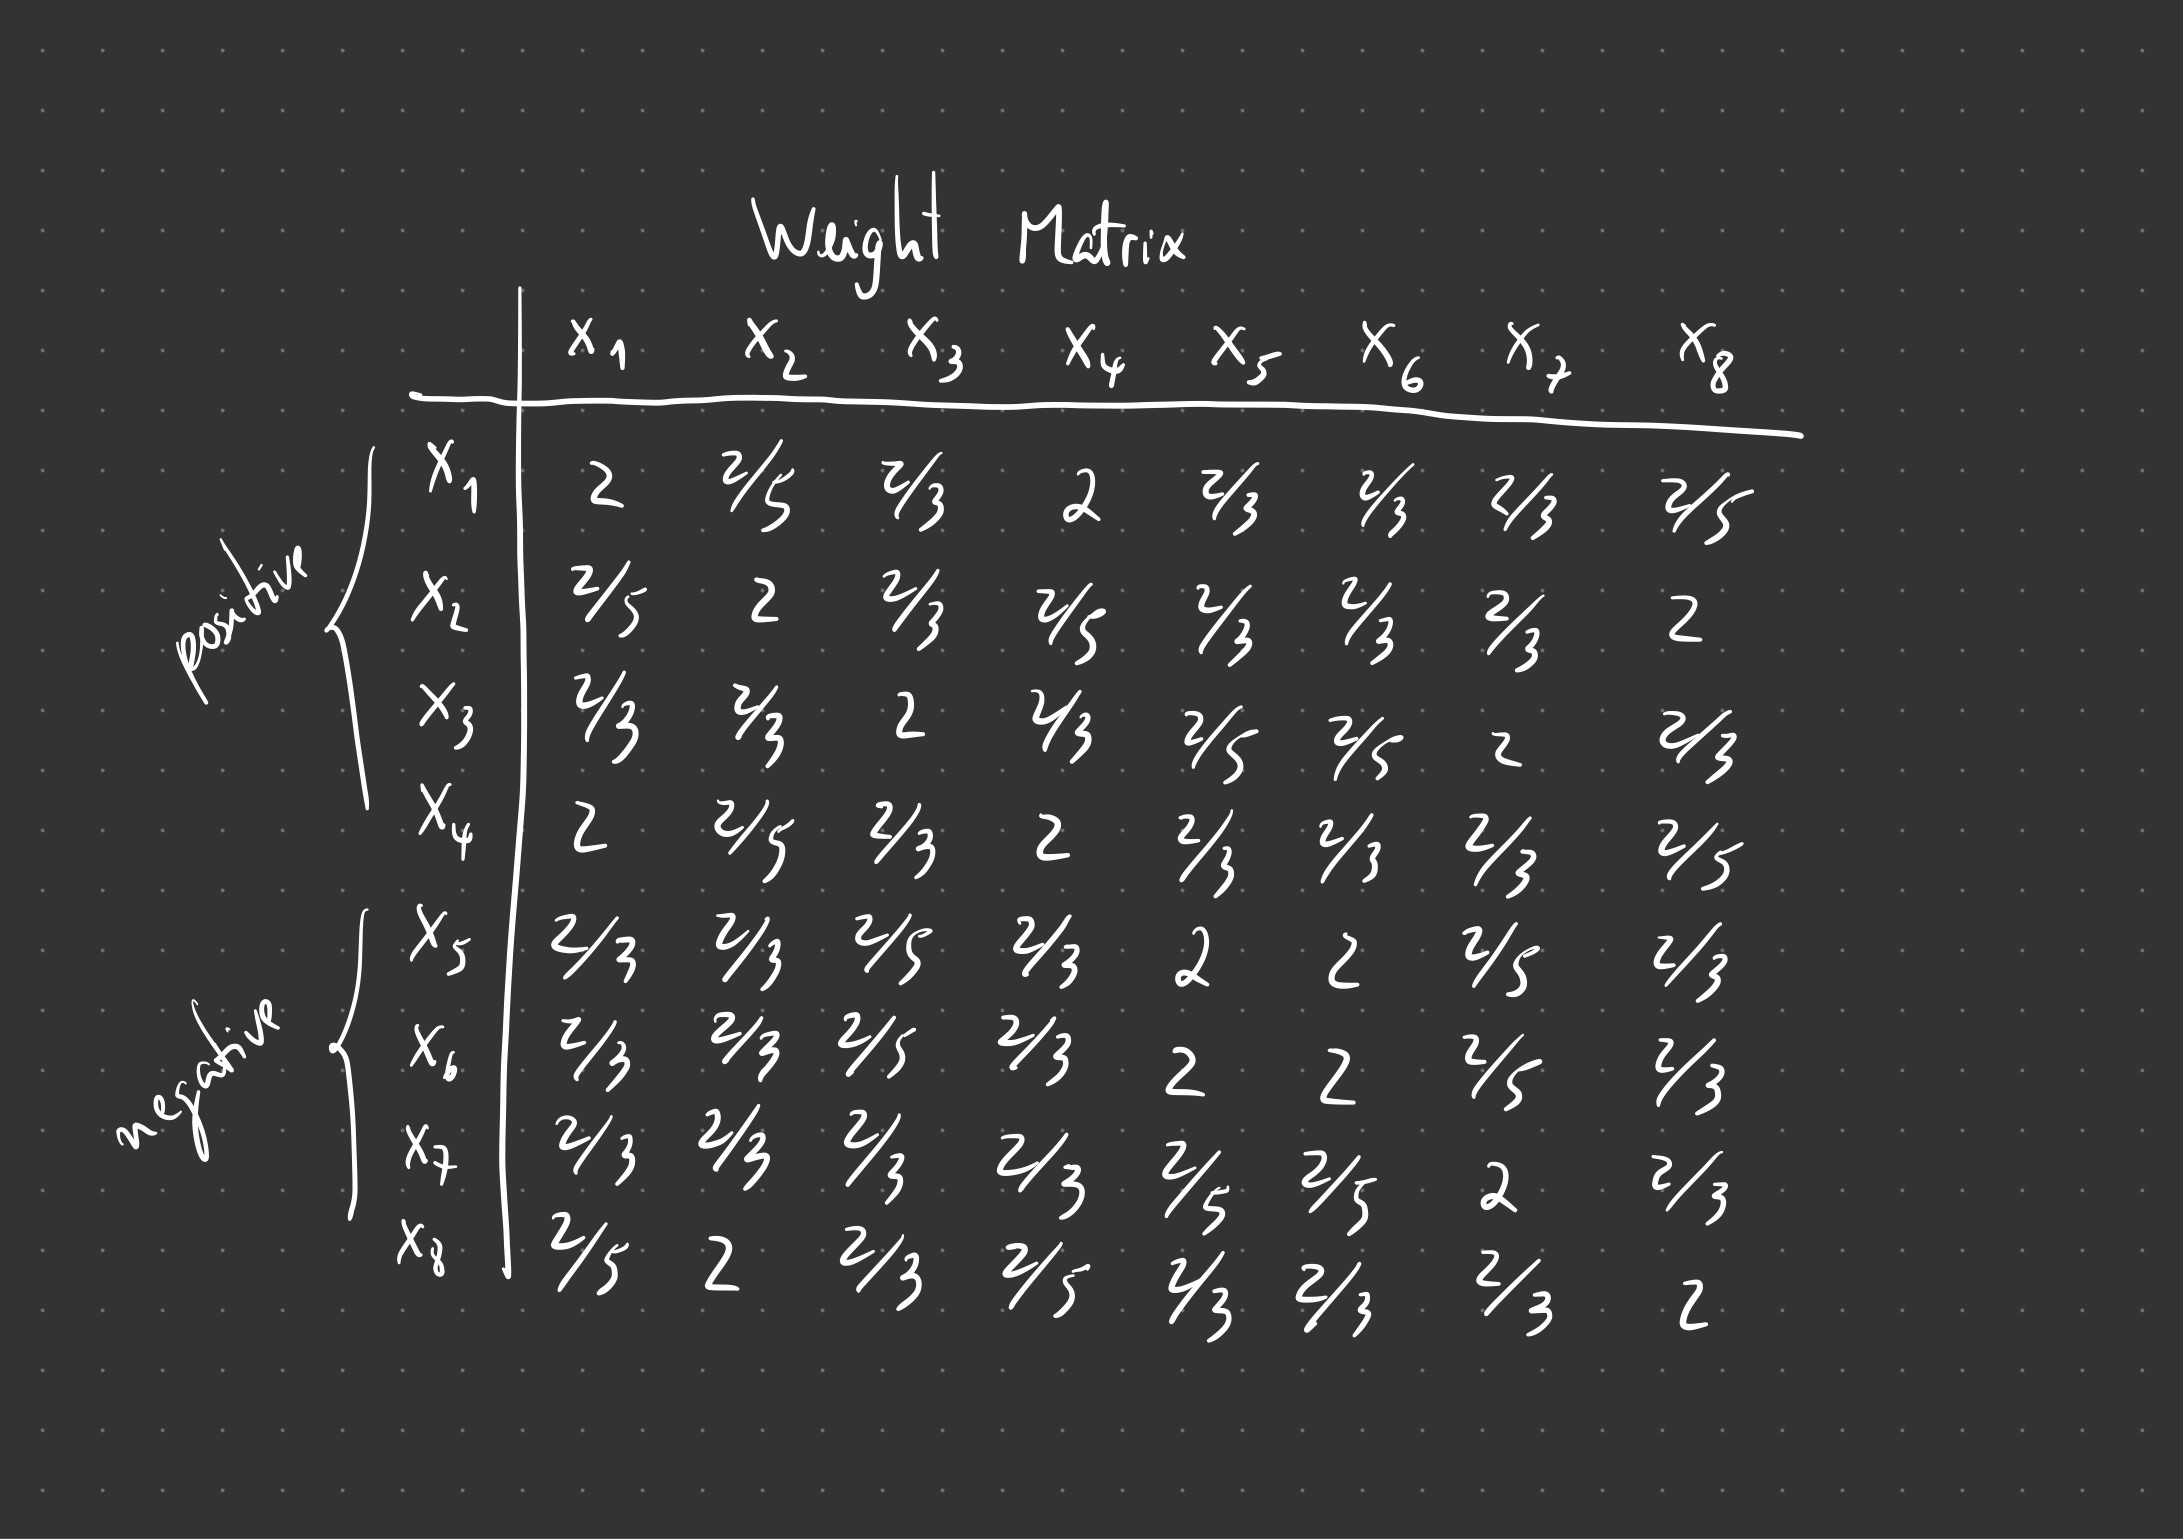 Weight Matrix
x₁ x₂ x₃ x₄ x₅ x₆ x₇ x₈
positive
x₁ 2 2/5 2/3 2 2/3 2/3 2/3 2/5
x₂ 2/5 2 2/3 2/5 2/3 2/3 2/3 2
x₃ 2/3 2/3 2 2/3 2/5 2/5 2 2/3
x₄ 2 2/5 2/3 2 2/3 2/3 2/3 2/5
negative
x₅ 2/3 2/3 2/5 2/3 2 2 2/5 2/3
x₆ 2/3 2/3 2/5 2/3 2 2 2/5 2/3
x₇ 2/3 2/3 2/3 2/3 2/5 2/5 2 2/3
x₈ 2/5 2 2/3 2/5 2/3 2/3 2/3 2